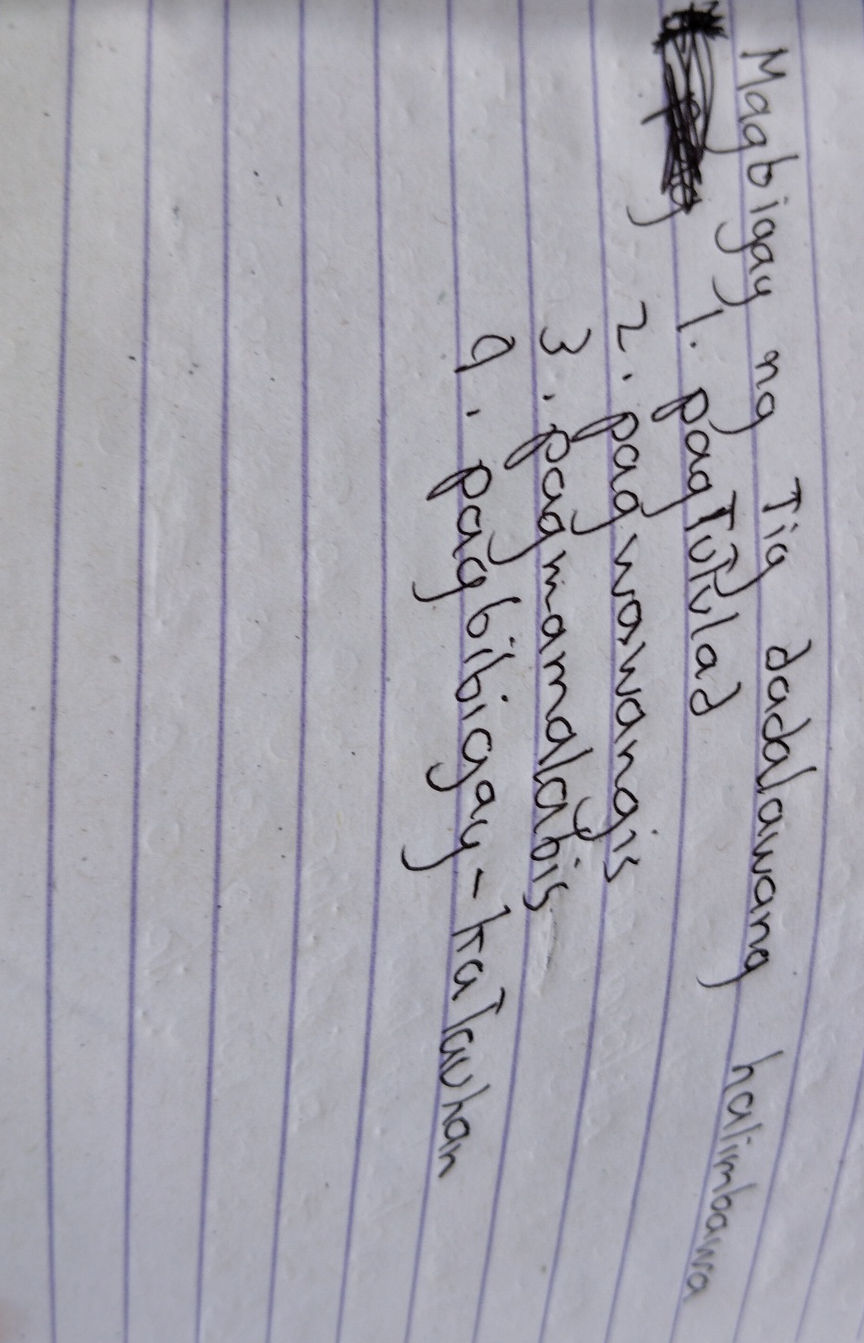 Magbigay ng Tig dadalawang halimbawa
1. pagTuTulad
2. pagwawangis
3. pagmamalabis
4. pagbibigay-kaTauhan